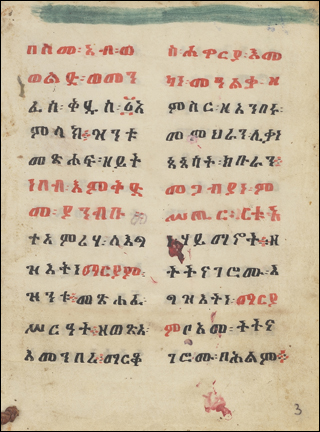 በስመ፡አብ፡ወ
ወልድ፡ወመን
ፈስ፡ቅዱስ፡፩አ
ምላክ፡ዝንቱ፡
መጽሐፍ፡ዘይት
ነበብ፡እምቅድ
መ፡ያንብቡ፡
ተአምሪሃ፡ለእግ
ዝእትነ፡ማርያም፡
ዝንቱ፡መጽሐፈ፡
ሥርዓት፡ዘወጽአ፡
እመንበረ፡ማርቆ
ስ፡ሐዋርያ፡እመ
ካነ፡መንልቃ፡ዘ
ምስር፡ዘአንበሩ፡
መምህራን፡ሊቃነ
ጳጳሳት፡ክቡራን፡
መጋብያነ፡ም
ሥጢር፡ርቱዓ
ነ፡ሃይማኖት፡ዘ
ትትናገሮሙ፡እ
ግዝእትነ፡ማርያ
ም፡ቦአመ፡ትትና
ገሮሙ፡በሕልም፡
3